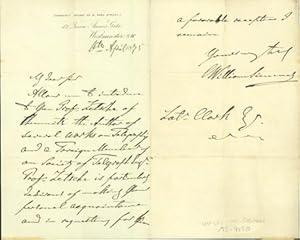 12 Queen Anne's Gate
Westminster SW
April 1875
My dear Sir
Allow me to introduce
to you Prof. Zetzche of
Chemnitz the author of
several works on Telegraphy
and a Foreign Member of
our Society of Telegraph Engrs
Prof. Zetzche is particularly
desirous of making your
personal acquaintance
and in requesting for him
a favorable reception I
remain
Yours very truly
C William Siemens
Latr. Clark Esq.